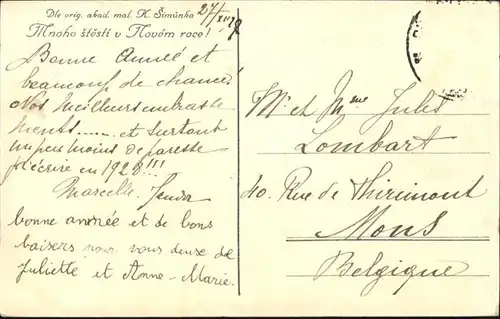 Dle orig. akad. mal. K. Šimůnka
27/XII 27
Mnoho štěstí v Novém roce!
Bonne Année et
beaucoup de chance!
Nos meilleurs embrasse
ments...... et surtout
un peu moins de paresse
d'écrire en 1928!!!
Marcelle.
bonne année et de bons
baisers pour vous deux de
Juliette et Anne-Marie.
Mr et Mme Jules
Lombart
40. Rue de Thirimont
Mons
Belgique